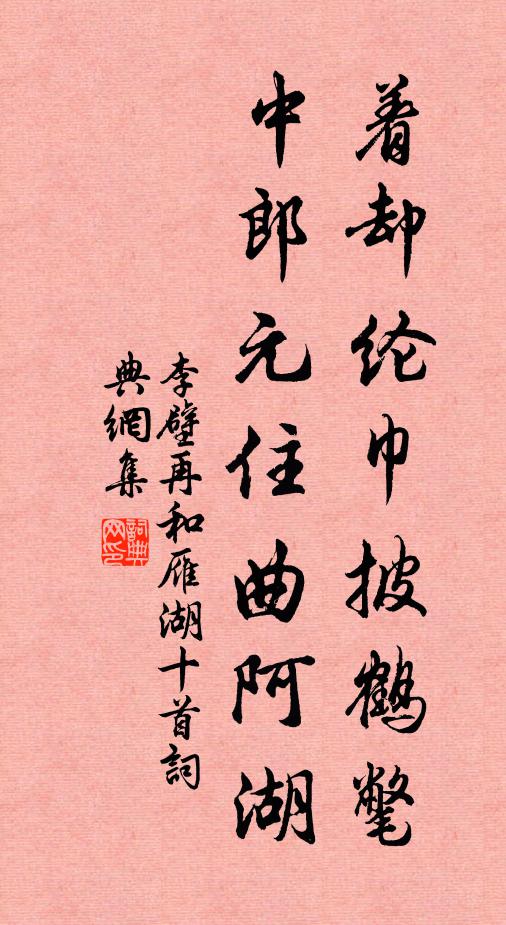 着却纶巾披鹤氅
中郎元住曲阿湖
李壁再和雁湖十首詞
典網集
詞典網印